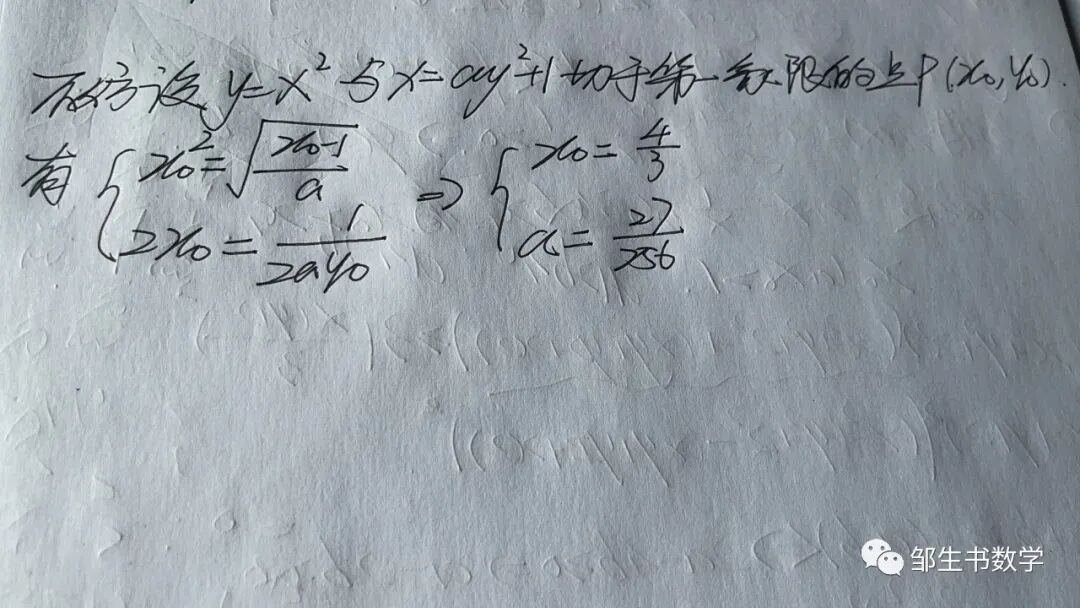 不妨设 y=x²与x=ay²+1切于第一象限的点P(x₀,y₀).
有 { x₀²=√((x₀-1)/a) ⇒ { x₀=4/3
2x₀=1/(2ay₀) a=27/256
邹生书数学